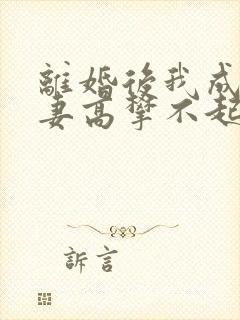 離婚後我成
妻高攀不起
訴言